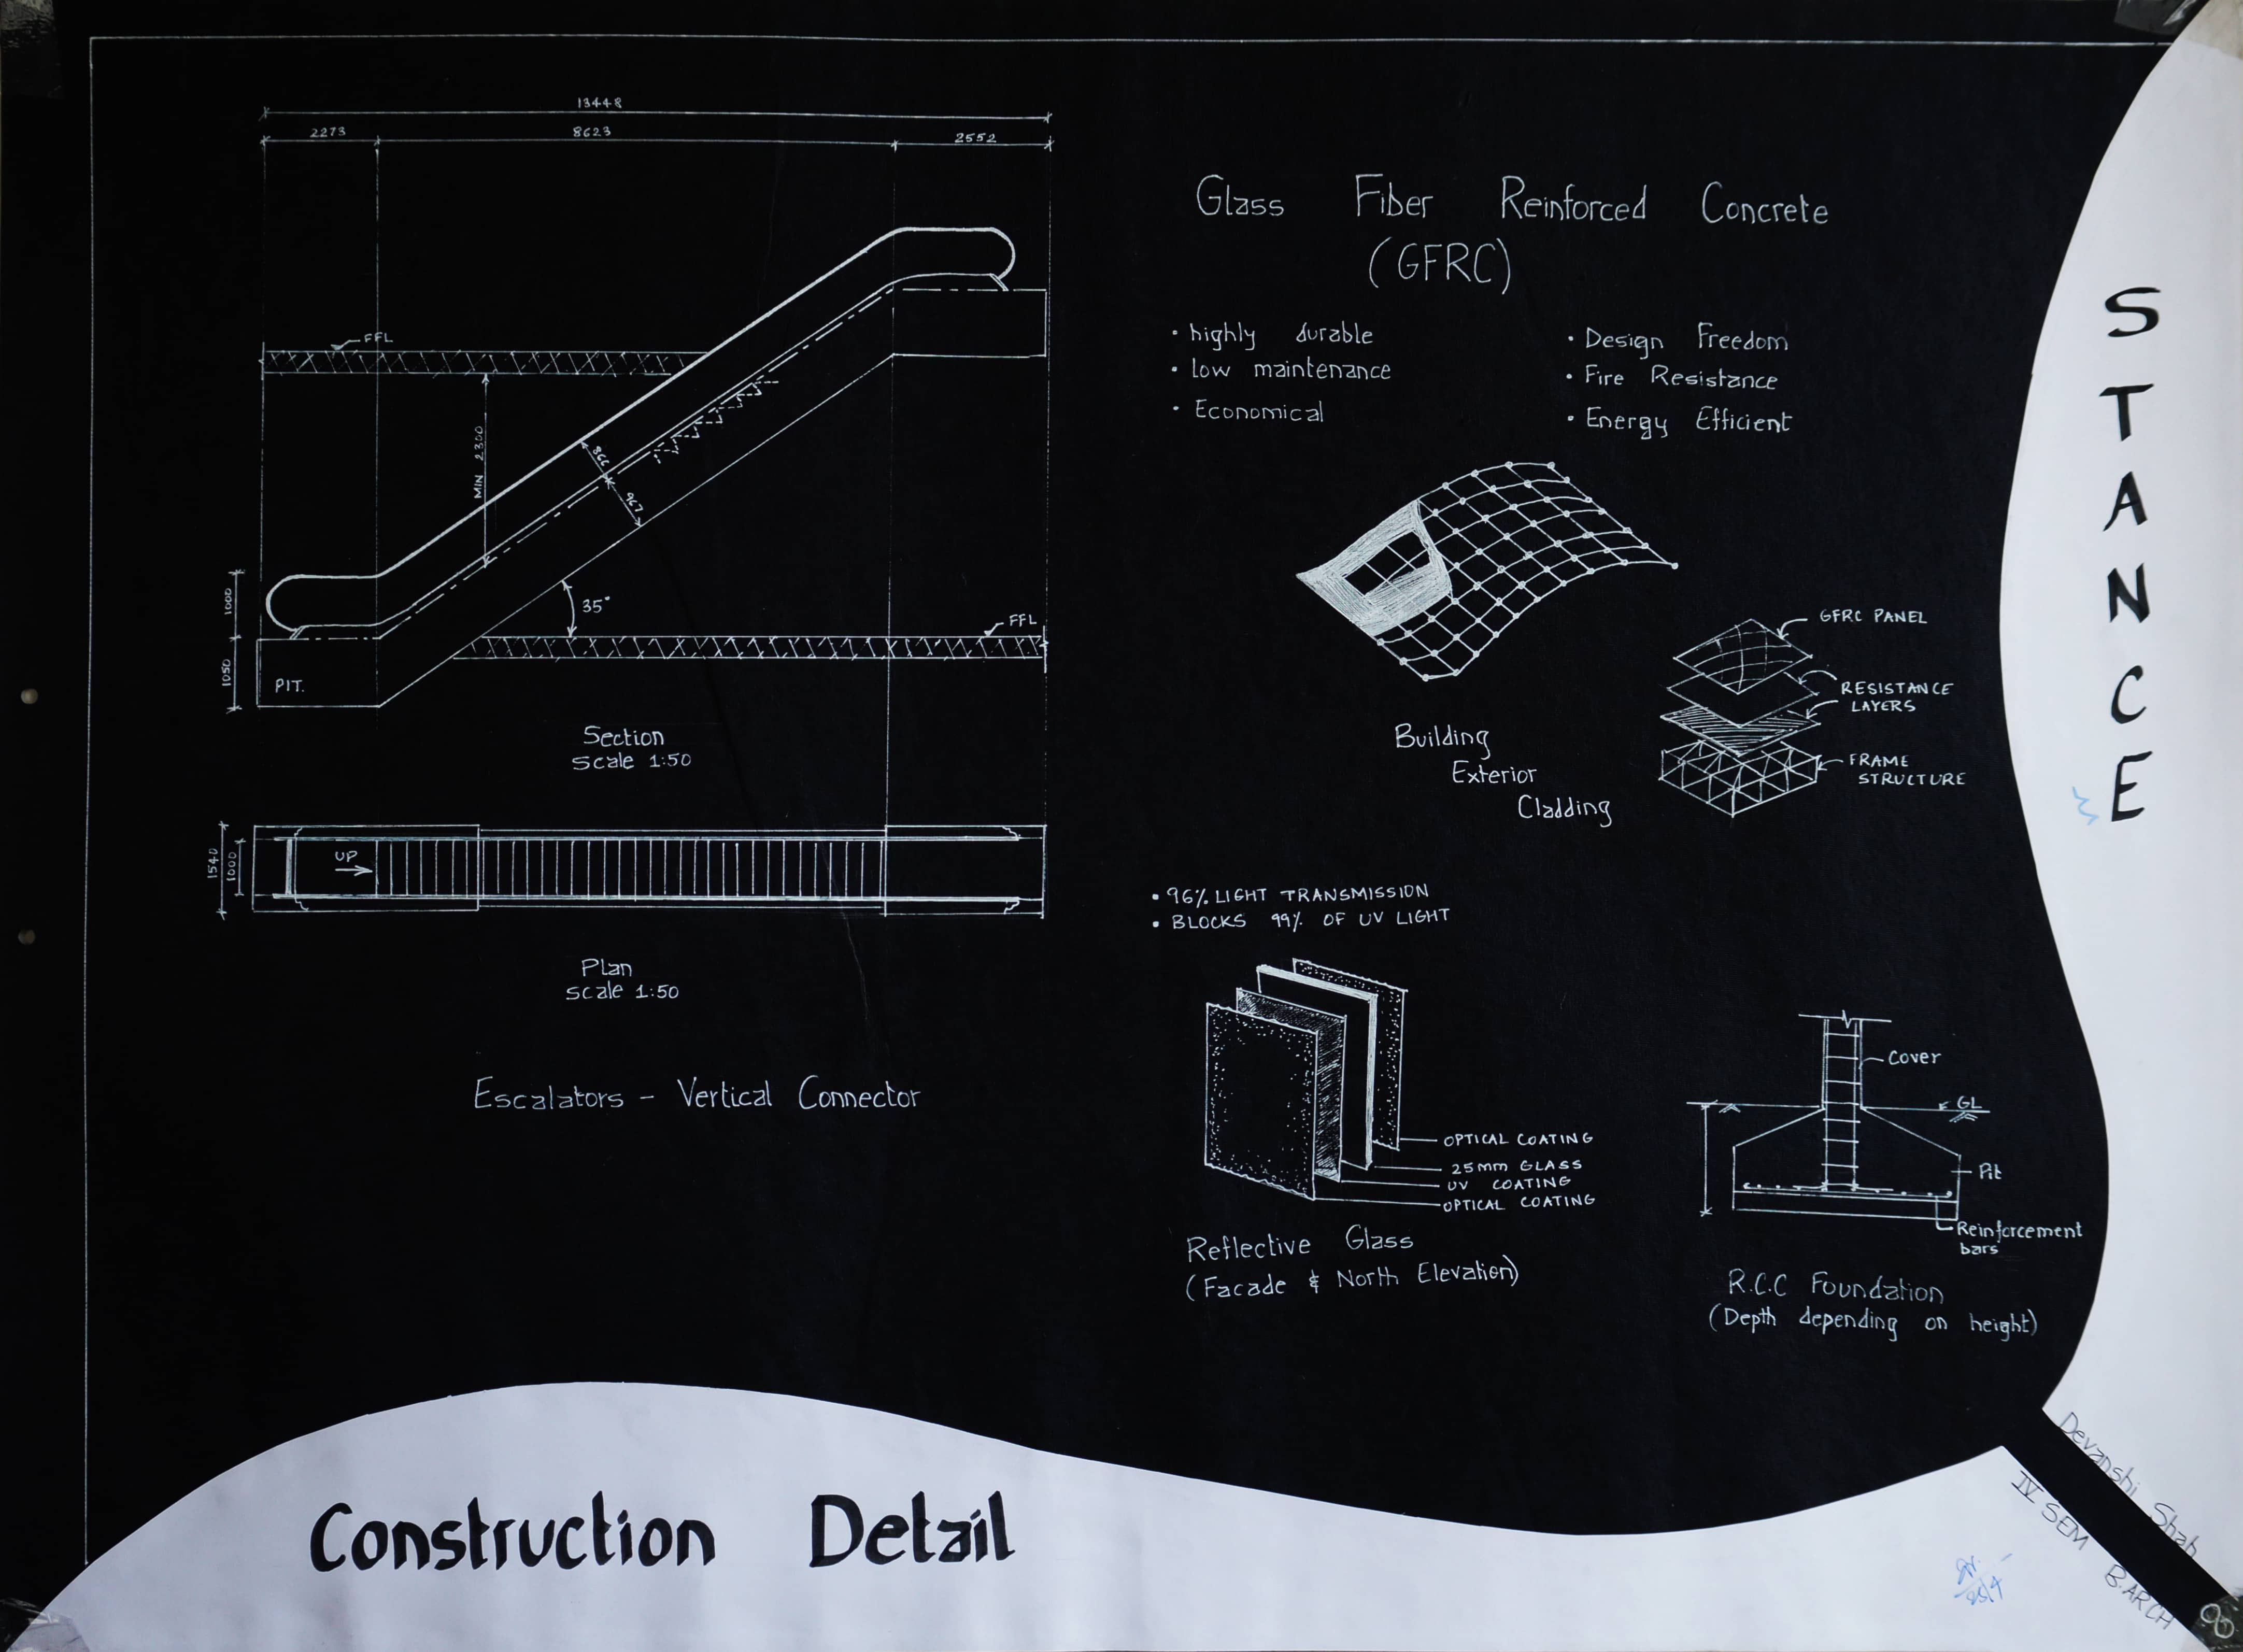 13448
2273 8623 2552
FFL
MIN 2300
866
967
35°
FFL
1000
1050
PIT.
Section
Scale 1:50
UP
1540
1000
Plan
Scale 1:50
Escalators - Vertical Connector
Glass Fiber Reinforced Concrete
(GFRC)
• highly durable
• low maintenance
• Economical
• Design Freedom
• Fire Resistance
• Energy Efficient
GFRC PANEL
RESISTANCE
LAYERS
FRAME
STRUCTURE
Building
Exterior
Cladding
• 96% LIGHT TRANSMISSION
• BLOCKS 99% OF UV LIGHT
OPTICAL COATING
25mm GLASS
UV COATING
OPTICAL COATING
Reflective Glass
(Facade & North Elevation)
Cover
GL
Pit
Reinforcement
bars
R.C.C Foundation
(Depth depending on height)
STANCE
Construction Detail
Devanshi Shah
IV SEM B.ARCH
8